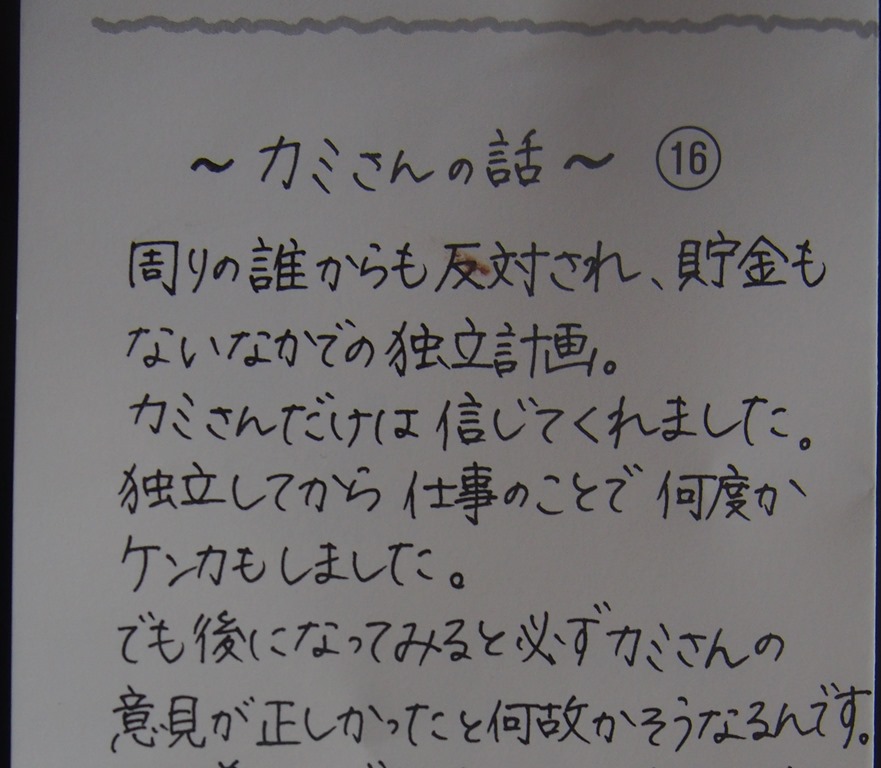 ～カミさんの話～ ⑯
周りの誰からも反対され、貯金も
ないなかでの独立計画。
カミさんだけは信じてくれました。
独立してから仕事のことで何度か
ケンカもしました。
でも後になってみると必ずカミさんの
意見が正しかったと何故かそうなるんです。